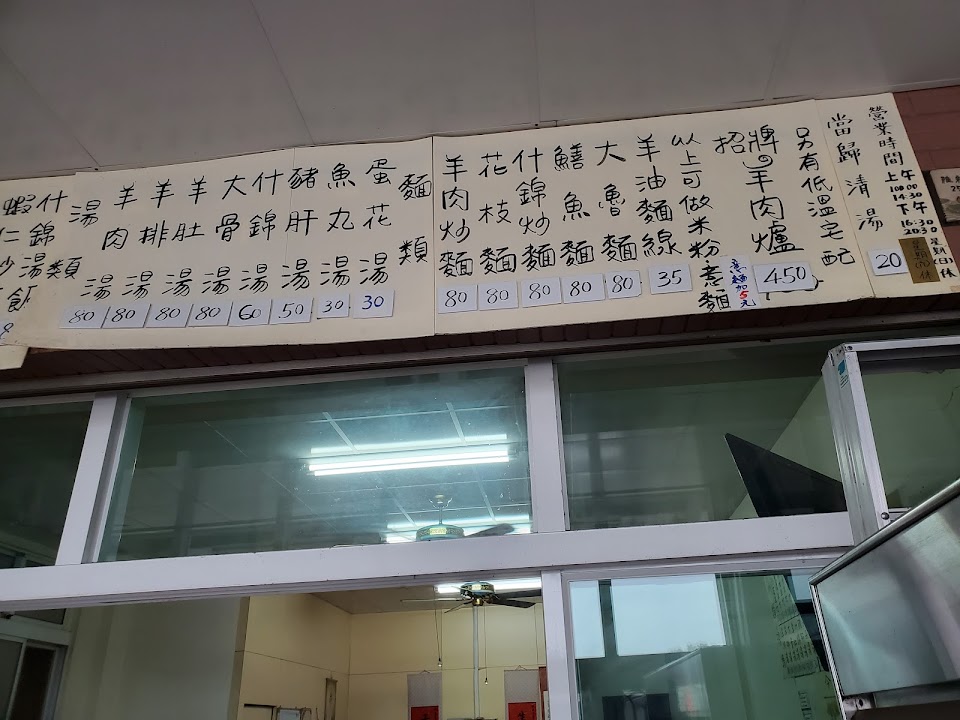 營業時間
上午
10:00
14:30
下午
16:30
20:30
星期日休
當歸清湯 20
另有低溫宅配
招牌羊肉爐 450
以上可做米粉意麵
意麵加5元
羊油麵線 35
大魯麵 80
鱔魚麵 80
什錦炒麵 80
花枝麵 80
羊肉炒麵 80
麵類
蛋花湯 30
魚丸湯 30
豬肝湯 50
什錦湯 60
大骨湯 80
羊肚湯 80
羊排湯 80
羊肉湯 80
湯類
什錦湯
蝦仁炒飯